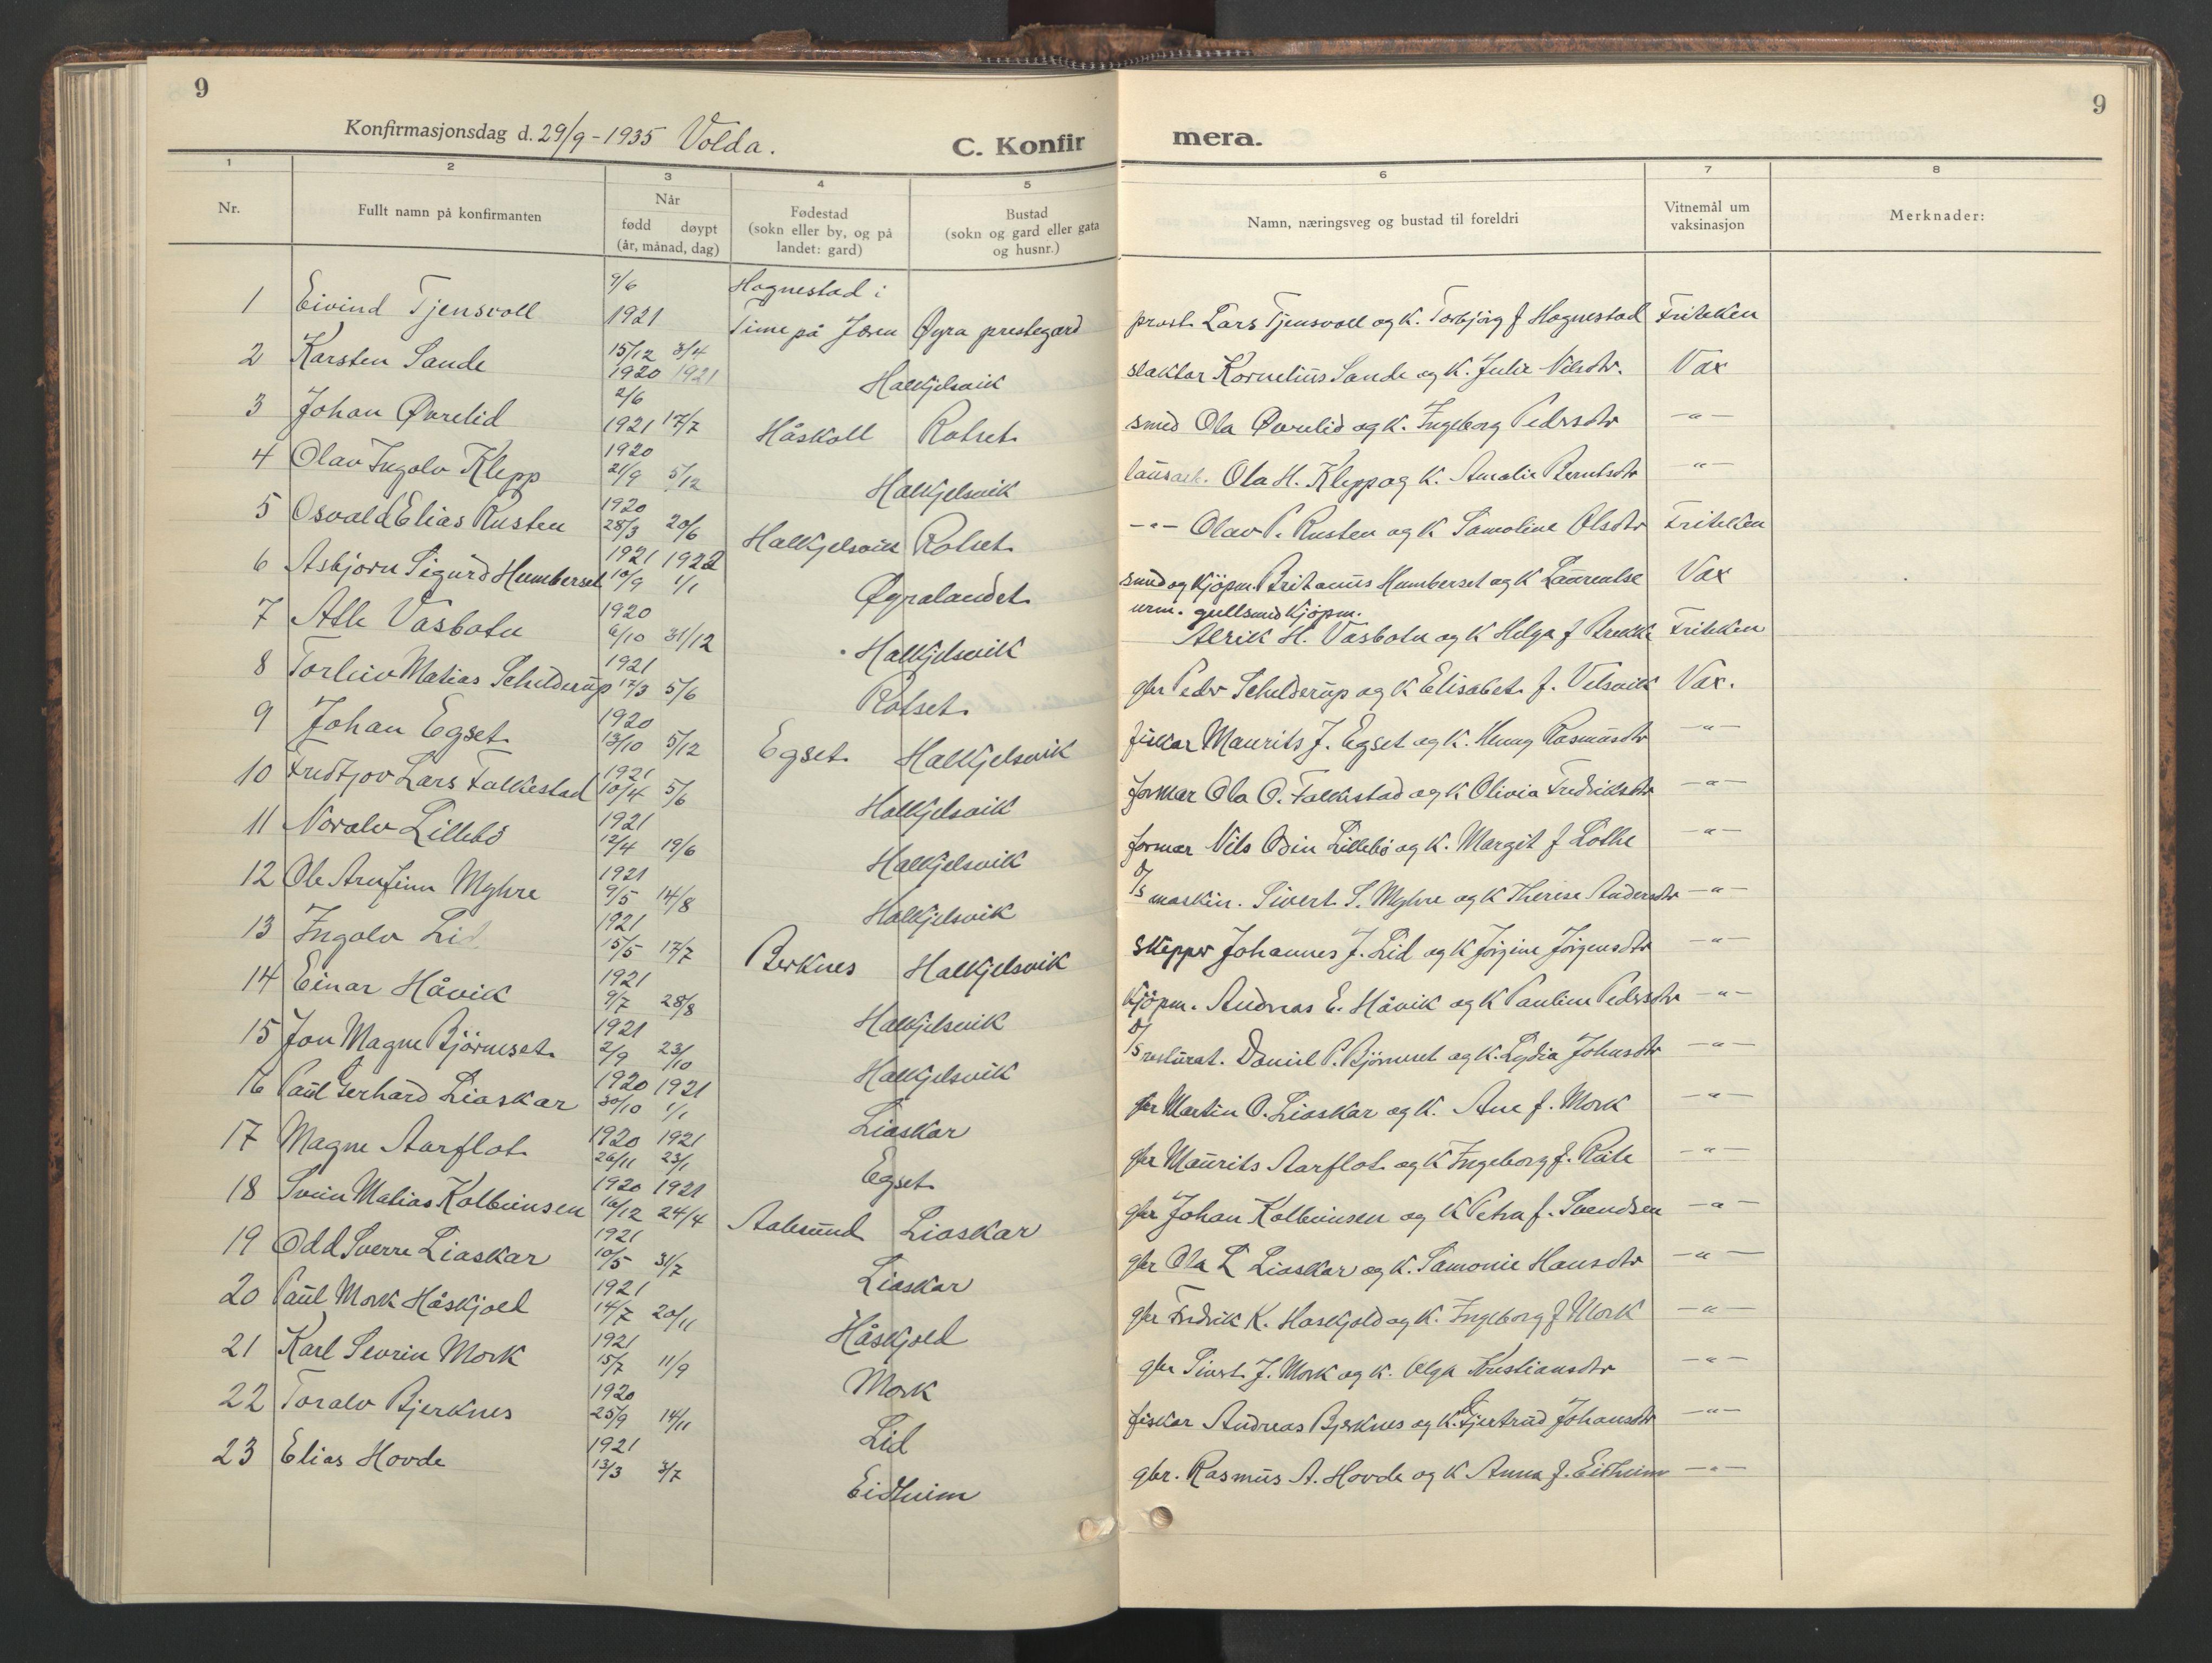 9
Konfirmasjonsdag d. 29/9 - 1935 Volda.
C. Konfir
mera.
9
1 2 3 4 5 6 7 8
Nr.
Fullt namn på konfirmanten
Når
fødd døypt
(år, månad, dag)
Fødestad
(sokn eller by, og på
landet: gard)
Bustad
(sokn og gard eller gata
og husnr.)
Namn, næringsveg og bustad til foreldri
Vitnemål um
vaksinasjon
Merknader:
1 Eivind Tjensvoll 9/6 1921 Hognestad i Time på Jæren Øyra prestegard prost Lars Tjensvoll og K. Torbjörg f Hognestad Friteken
2 Karsten Sande 15/12 1920 3/4 1921 Halkjelsvik slaktar Kornelius Sande og K. Julie Nilsdtr. Vax
3 Johan Øvrelid 2/6 1921 17/7 Håskoll Rotset smed Ola Øvrelid og K. Ingeborg Pedrsdtr -"-
4 Olav Ingolv Klepp 1920 21/9 5/12 Halkjelsvik lausarb. Ola H. Klepp og K. Amalie Berntsdtr -"-
5 Osvald Elias Rusten 1920 28/3 20/6 Halkjelsvik Rotset -"- Olav P. Rusten og K Samoline Olsdtr Friteken
6 Asbjørn Sigurd Humberset 1921 10/9 1922 1/1 Øyralandet smed og Kjöpm. Britanus Humberset og K Laurentse Vax
7 Atle Vasbotn 1920 6/10 31/12 Halkjelsvik urm. gullsmed Kjöpm. Alrik H. Vasbotn og K Helga f Brekke Friteken
8 Torleiv Matias Schilderup 1921 17/3 5/6 Rotset gbr Peder Schilderup og K Elisabet f. Velsvik Vax.
9 Johan Egset 1920 13/10 5/12 Egset Halkjelsvik fiskar Maurits J. Egset og K. Henny Rasmusdtr -"-
10 Fredtjov Lars Folkestad 1921 10/4 5/6 Halkjelsvik formar Ola O. Folkestad og K Olivia Fredriksdtr -"-
11 Noralv Lillebö 1921 12/4 19/6 Halkjelsvik formar Nils Odin Lillebö og K. Margit f Lothe -"-
12 Ole Arnfinn Myhre 1921 9/5 14/8 Halkjelsvik D/s maskin. Sivert S. Myhre og K Therese Andersdtr -"-
13 Ingolv Lid 1921 15/5 17/7 Berknes Halkjelsvik skipper Johannes J. Lid og K Jörgine Jörgensdtr -"-
14 Einar Håvik 1921 9/7 28/8 Halkjelsvik Kjöpm. Andreas E. Håvik og K Pauline Pedersdtr -"-
15 Jon Magne Björneset 1921 2/9 23/10 Halkjelsvik D/s resturat. Daniel P. Björneset og K. Lydia Johnsdtr -"-
16 Paul Gerhard Lioskar 1920 30/10 1921 1/1 Lioskar gbr Martin O. Lioskar og K. Ane f. Mork -"-
17 Magne Aarflot 1920 26/11 1921 23/1 Egset gbr Maurits Aarflot og K Ingeborg f. -"-
18 Svein Matias Kolbeinsen 1920 16/12 1921 24/4 Aalesund Lioskar gbr Johan Kolbeinsen og K Petra f. Svendsen -"-
19 Odd Sverre Lioskar 1921 10/5 31/7 Lioskar gbr Ola L Lioskar og K. Samonie Hansdtr -"-
20 Paul Mork Håskjold 1921 14/7 20/11 Håskjold gbr Fredrik K. Haskjold og K. Ingeborg f Mork -"-
21 Karl Sevrin Mork 1921 15/7 11/9 Mork gbr Sivert J. Mork og K. Olga Kristiansdtr -"-
22 Toralv Bjerknes 1920 25/9 14/11 Lid fiskar Andreas Bjerknes og K. Gjertrud Johansdtr -"-
23 Elias Hovde 1921 13/3 3/7 Eidheim gbr. Rasmus A. Hovde og K Anna f. Eidheim -"-